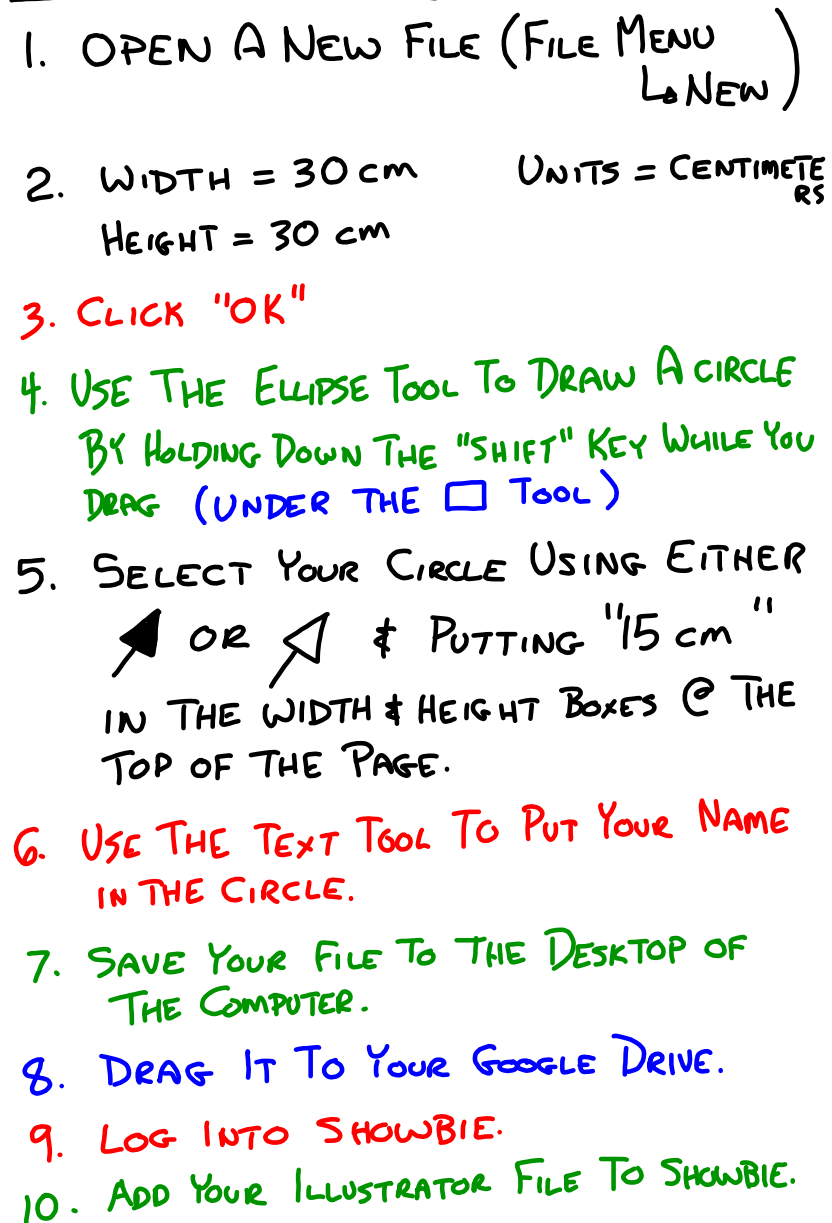 1. OPEN A NEW FILE (FILE MENU
↳ NEW)
2. WIDTH = 30 cm UNITS = CENTIMETE
RS
HEIGHT = 30 cm
3. CLICK "OK"
4. USE THE ELLIPSE TOOL TO DRAW A CIRCLE
BY HOLDING DOWN THE "SHIFT" KEY WHILE YOU
DRAG (UNDER THE □ TOOL)
5. SELECT YOUR CIRCLE USING EITHER
OR & PUTTING "15 cm"
IN THE WIDTH & HEIGHT BOXES @ THE
TOP OF THE PAGE.
6. USE THE TEXT TOOL TO PUT YOUR NAME
IN THE CIRCLE.
7. SAVE YOUR FILE TO THE DESKTOP OF
THE COMPUTER.
8. DRAG IT TO YOUR GOOGLE DRIVE.
9. LOG INTO SHOWBIE.
10. ADD YOUR ILLUSTRATOR FILE TO SHOWBIE.